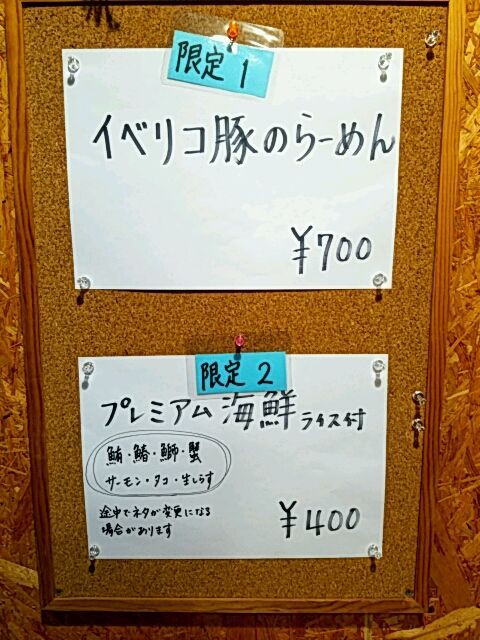 限定 1
イベリコ豚のらーめん
¥700
限定 2
プレミアム海鮮ライス付
鮪・鰆・鰤・蟹
サーモン・タコ・生しらす
途中でネタが変更になる
場合があります
¥400